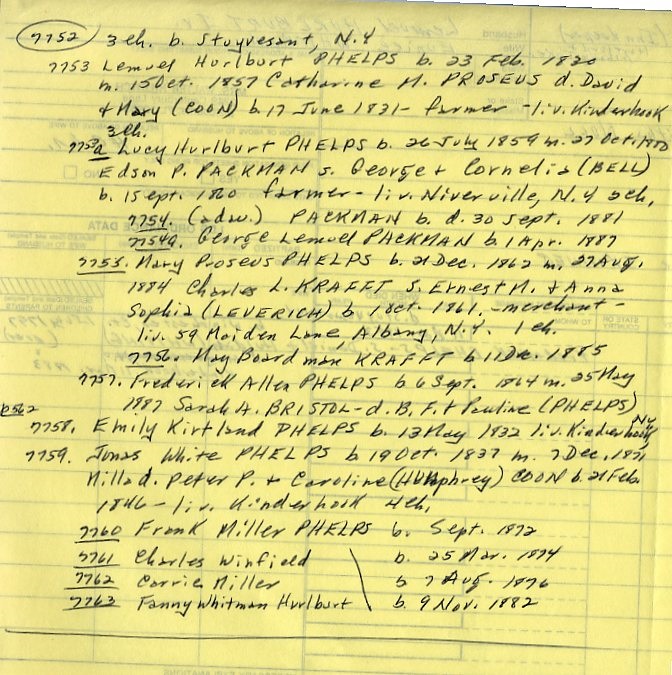 7752 3ch. b. Stuyvesant, N.Y
7753 Lemuel Hurlburt PHELPS b. 23 Feb. 1830
m. 15 Oct. 1857 Catharine M. PROSEUS d. David
+ Mary (COON) b. 17 June 1831 - farmer - liv. Kinderhook
3ch.
7753a Lucy Hurlburt PHELPS b. 26 July 1859 m. 27 Oct. 1880
Edson P. PACKMAN s. George + Cornelia (BELL)
b. 1 Sept. 1860 farmer - liv. Niverville, N.Y 2ch.
7754. (dau.) PACKMAN b. d. 30 Sept. 1881
7754a. George Lemuel PACKMAN b. 1 Apr. 1887
7755. Mary Proseus PHELPS b. 21 Dec. 1862 m. 27 Aug.
1884 Charles L. KRAFFT s. Ernest M. + Anna
Sophia (LEVERICH) b. 1 Oct. 1861. - merchant -
liv. 59 Maiden Lane, Albany, N.Y. 1ch.
7756. May Boardman KRAFFT b. 11 Dec. 1885
7757. Frederick Allen PHELPS b. 6 Sept. 1864 m. 25 May
1887 Sarah A. BRISTOL - d. B. F. + Pauline (PHELPS)
p562
7758. Emily Kirtland PHELPS b. 13 May 1832 liv. Kinderhook NY
7759. Jonas White PHELPS b. 19 Oct. 1837 m. 7 Dec. 1871
Milla d. Peter P. + Caroline (HUMphrey) COON b. 21 Feb.
1846 - liv. Kinderhook 4ch.
7760 Frank Miller PHELPS b. Sept. 1872
7761 Charles Winfield b. 25 Mar. 1874
7762 Carrie Miller b 7 Aug. 1876
7763 Fanny Whitman Hurlburt b. 9 Nov. 1882